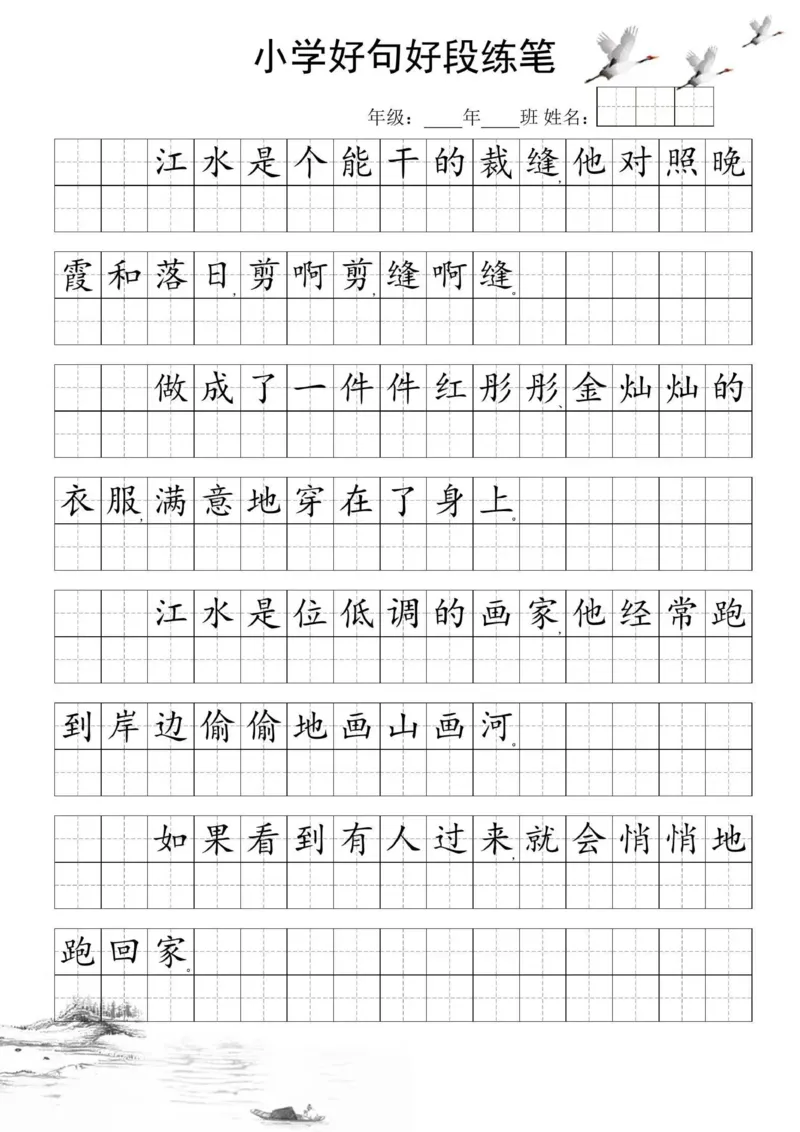 小学好句好段练笔
年级：____年____班 姓名：
江水是个能干的裁缝，他对照晚
霞和落日，剪啊剪，缝啊缝。
做成了一件件红彤彤、金灿灿的
衣服，满意地穿在了身上。
江水是位低调的画家，他经常跑
到岸边偷偷地画山画河。
如果看到有人过来，就会悄悄地
跑回家。